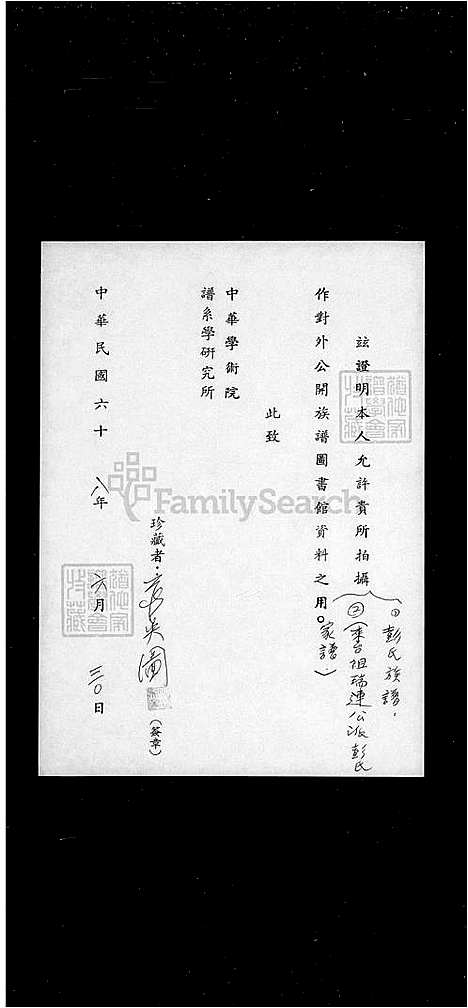 茲證明本人允許貴所拍攝
①彭氏族譜,
②(來台祖瑞連公派彭氏
家譜.)
作對外公開族譜圖書館資料之用。
此致
中華學術院
譜系學研究所
珍藏者.
(簽章)
中華民國六十八年六月三〇日
FamilySearch